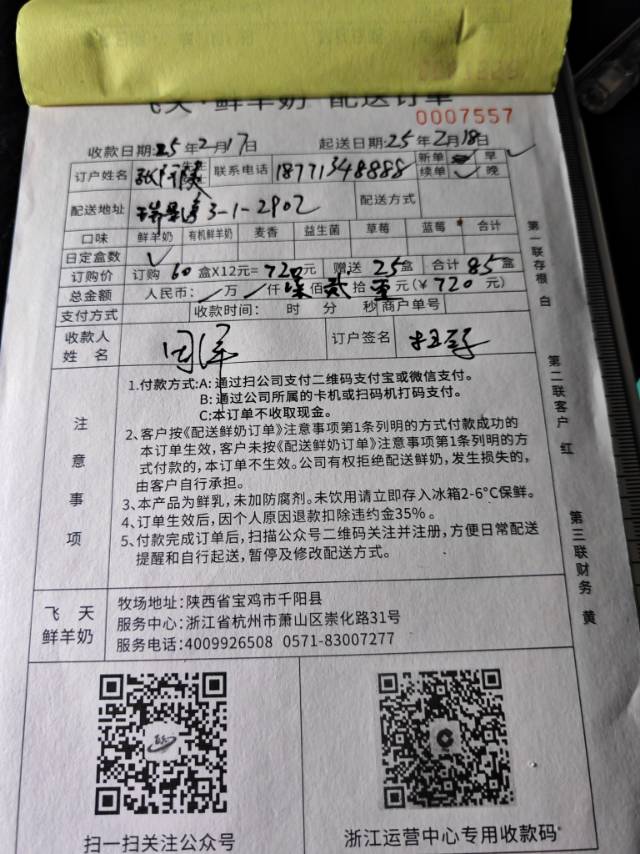 飞天·鲜羊奶 配送订单
0007557
收款日期:25年2月17日 起送日期:25年2月18日
订户姓名 联系电话 18771348888 新单 早
续单 晚
配送地址 3-1-2902 配送方式
口味 鲜羊奶 有机鲜羊奶 麦香 益生菌 草莓 蓝莓 合计
日定盒数 ✓
订购价 订购 60 盒X12元=720元 赠送 25盒 合计 85盒
总金额 人民币: / 万 / 仟 柒 佰 贰 拾 零 元(¥ 720 元)
支付方式 收款时间: 时 分 秒 商户单号
收款人
姓名 订户签名
注意事项
1.付款方式:A: 通过扫公司支付二维码支付宝或微信支付。
B: 通过公司所属的卡机或扫码机打码支付。
C:本订单不收取现金。
2、客户按《配送鲜奶订单》注意事项第1条列明的方式付款成功的
本订单生效,客户未按《配送鲜奶订单》注意事项第1条列明的方
式付款的,本订单不生效。公司有权拒绝配送鲜奶,发生损失的,
由客户自行承担。
3、本产品为鲜乳,未加防腐剂。未饮用请立即存入冰箱2-6°C保鲜。
4、订单生效后,因个人原因退款扣除违约金35%。
5、付款完成订单后,扫描公众号二维码关注并注册,方便日常配送
提醒和自行起送,暂停及修改配送方式。
飞天
鲜羊奶
牧场地址:陕西省宝鸡市千阳县
服务中心:浙江省杭州市萧山区崇化路31号
服务电话:4009926508 0571-83007277
扫一扫关注公众号
浙江运营中心专用收款码
第一联存根 白
第二联客户 红
第三联财务 黄